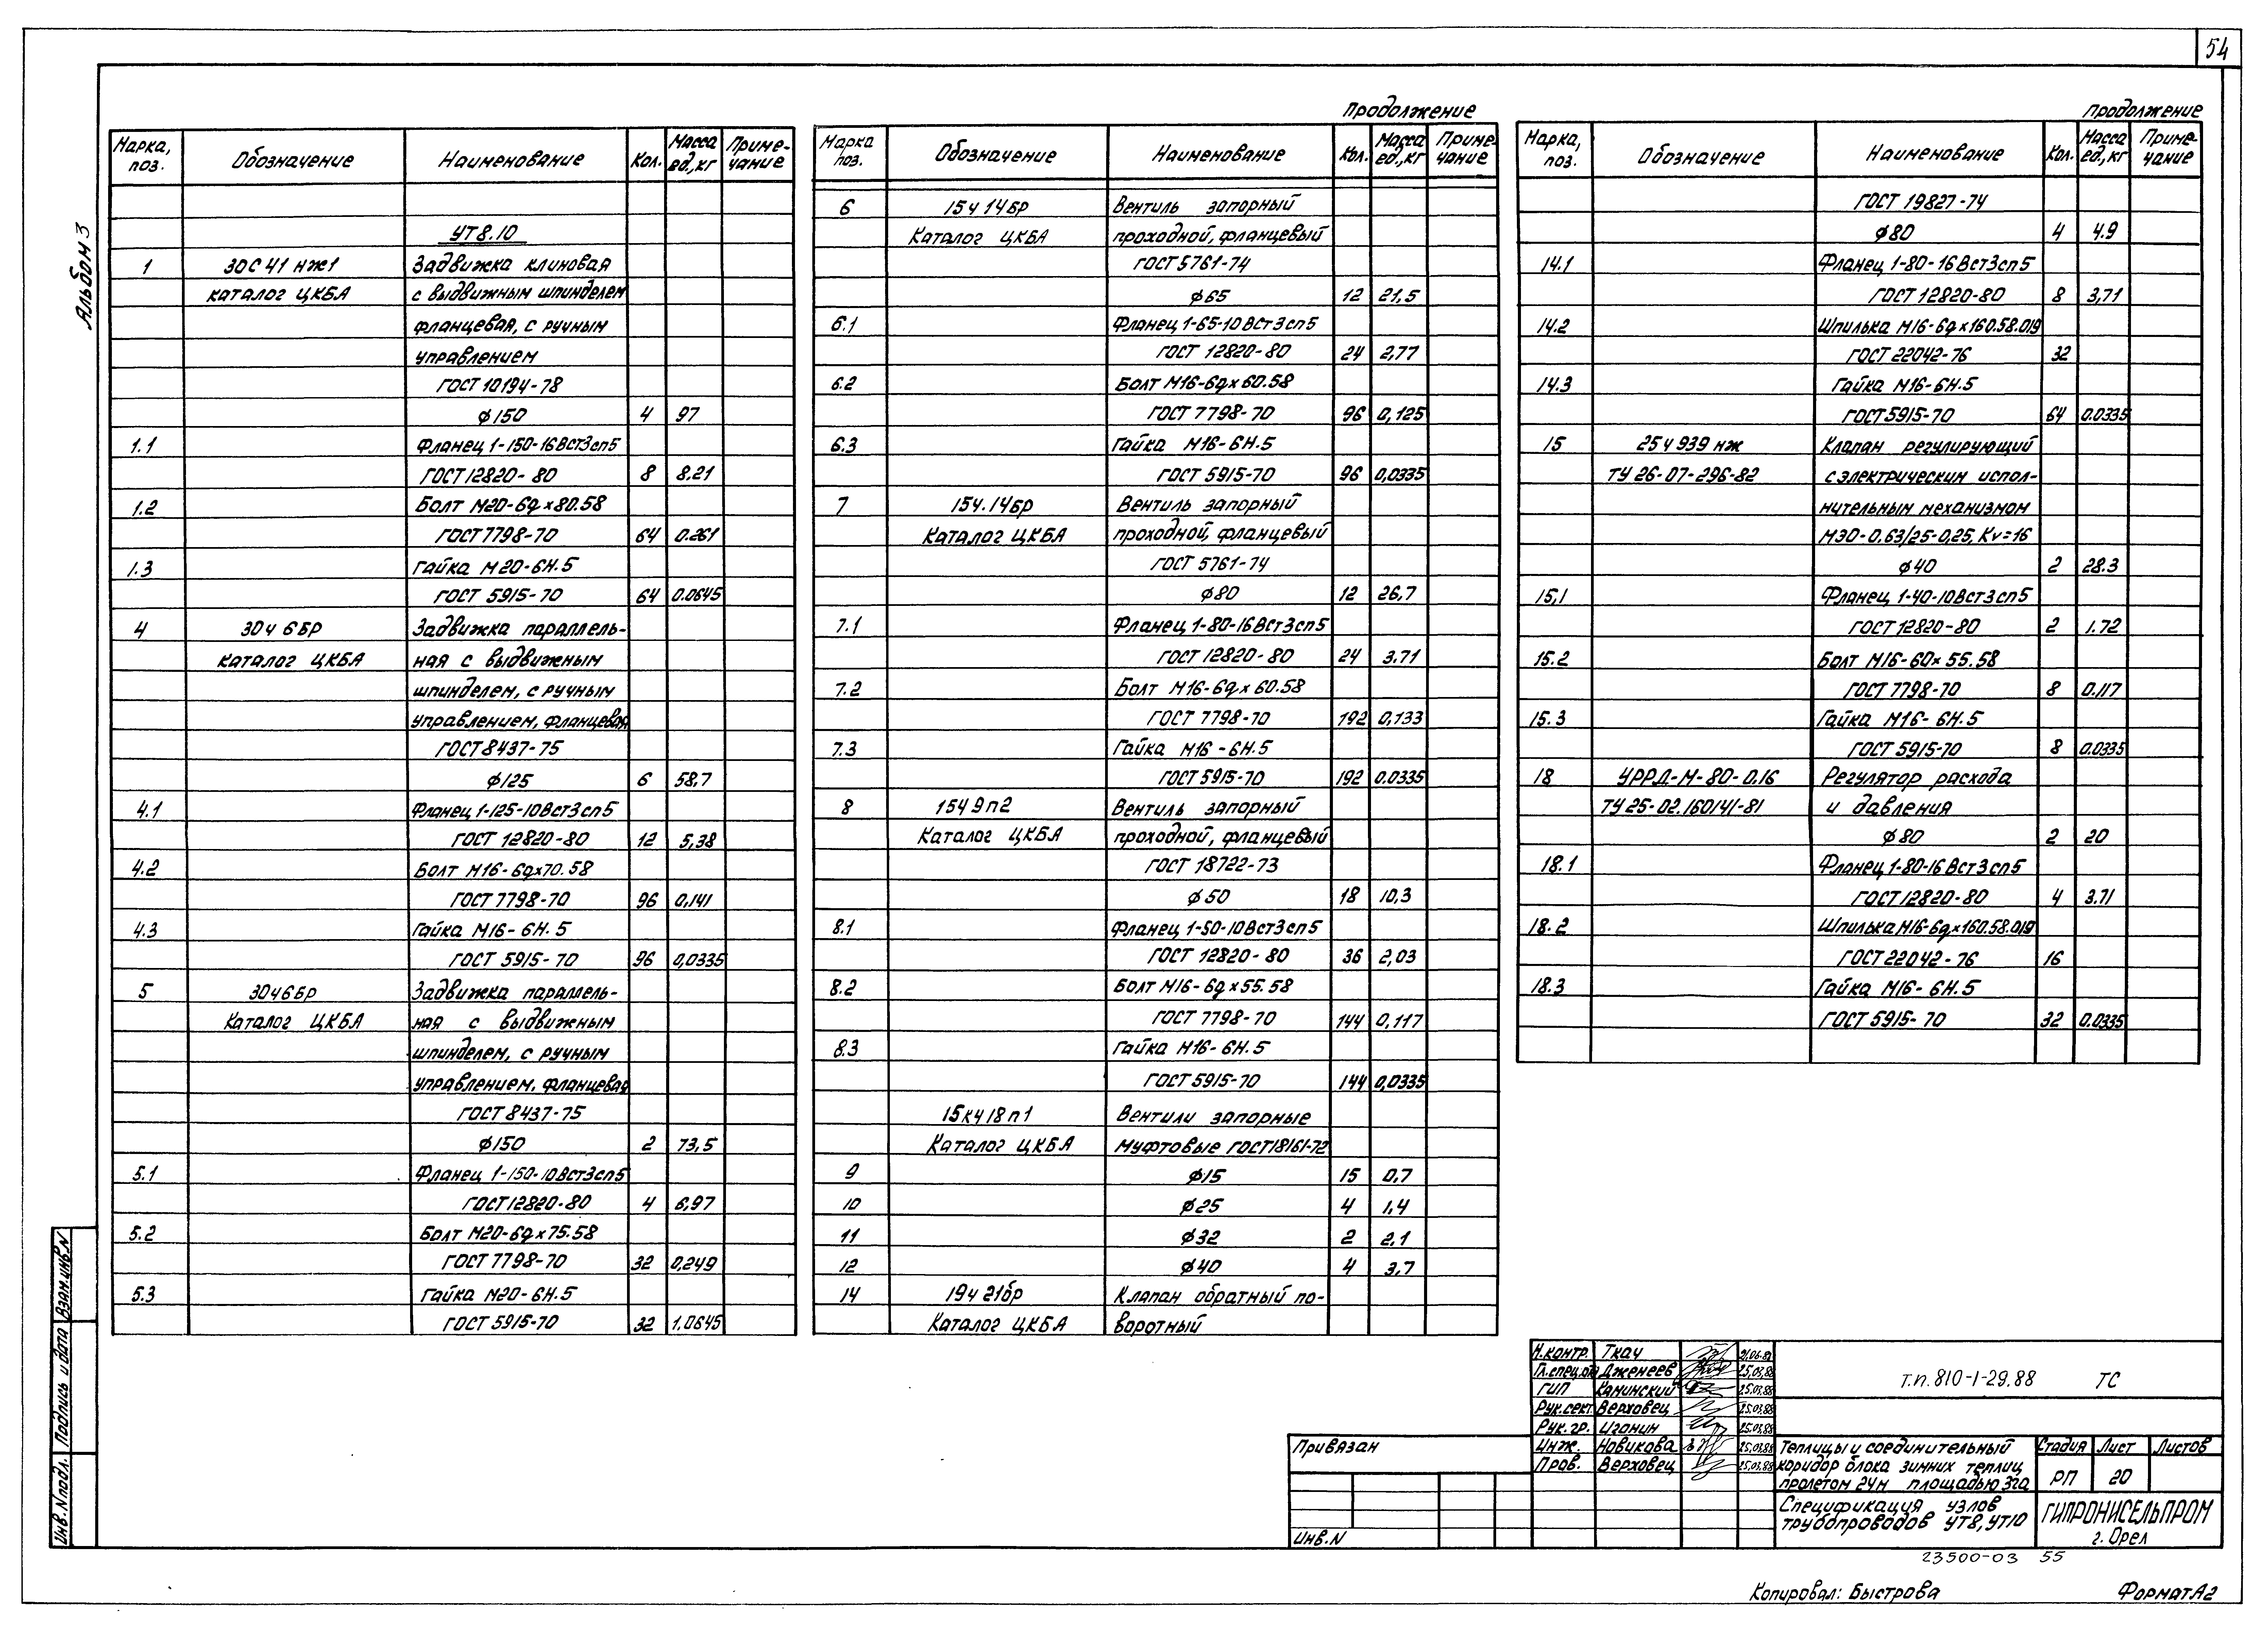 54
Альбом 3
Марка, поз. Обозначение Наименование Кол. Масса ед.,кг Приме-чание
УТ8.10
1 30с 41 нж1 Задвижка клиновая
каталог ЦКБА с выдвижным шпинделем
фланцевая, с ручным
управлением
ГОСТ 10194-78
ф150 4 97
1.1 Фланец 1-150-16Вст3сп5
ГОСТ 12820-80 8 8.21
1.2 Болт М20-6gх80.58
ГОСТ 7798-70 64 0.261
1.3 Гайка М20-6Н.5
ГОСТ 5915-70 64 0.0645
4 30ч 6бр Задвижка параллель-
Каталог ЦКБА ная с выдвижным
шпинделем, с ручным
управлением, фланцевая
ГОСТ 8437-75
ф125 6 58,7
4.1 Фланец 1-125-10Вст3сп5
ГОСТ 12820-80 12 5,38
4.2 Болт М16-6gх70.58
ГОСТ 7798-70 96 0,141
4.3 Гайка М16-6Н.5
ГОСТ 5915-70 96 0,0335
5 30ч6бр Задвижка параллель-
Каталог ЦКБА ная с выдвижным
шпинделем, с ручным
управлением, фланцевая
ГОСТ 8437-75
ф150 2 73,5
5.1 Фланец 1-150-10Вст3сп5
ГОСТ 12820-80 4 6,97
5.2 Болт М20-6gх75.58
ГОСТ 7798-70 32 0,249
5.3 Гайка М20-6Н.5
ГОСТ 5915-70 32 1.0645
Продолжение
Марка поз. Обозначение Наименование Кол. Масса ед.,кг Приме-чание
6 15ч 14бр Вентиль запорный
Каталог ЦКБА проходной, фланцевый
ГОСТ 5761-74
ф65 12 21,5
6.1 Фланец 1-65-10Вст3сп5
ГОСТ 12820-80 24 2,77
6.2 Болт М16-6gх60.58
ГОСТ 7798-70 96 0,125
6.3 Гайка М16-6Н.5
ГОСТ 5915-70 96 0,0335
7 15ч.14бр Вентиль запорный
Каталог ЦКБА проходной, фланцевый
ГОСТ 5761-74
ф80 12 26,7
7.1 Фланец 1-80-16Вст3сп5
ГОСТ 12820-80 24 3.71
7.2 Болт М16-6gх60.58
ГОСТ 7798-70 192 0,133
7.3 Гайка М16-6Н.5
ГОСТ 5915-70 192 0.0335
8 15ч 9п2 Вентиль запорный
Каталог ЦКБА проходной, фланцевый
ГОСТ 18722-73
ф50 18 10,3
8.1 Фланец 1-50-10Вст3сп5
ГОСТ 12820-80 36 2,03
8.2 Болт М16-6gх55.58
ГОСТ 7798-70 144 0,117
8.3 Гайка М16-6Н.5
ГОСТ 5915-70 144 0,0335
15кч18п1 Вентили запорные
Каталог ЦКБА муфтовые ГОСТ18161-72
9 ф15 15 0,7
10 ф25 4 1,4
11 ф32 2 2.1
12 ф40 4 3.7
14 19ч 21бр Клапан обратный по-
Каталог ЦКБА воротный
Продолжение
Марка, поз. Обозначение Наименование Кол. Масса ед.,кг Приме-чание
ГОСТ 19827-74
ф80 4 4.9
14.1 Фланец 1-80-16Вст3сп5
ГОСТ 12820-80 8 3,71
14.2 Шпилька М16-6gх160.58.019
ГОСТ 22042-76 32
14.3 Гайка М16-6Н.5
ГОСТ 5915-70 64 0.0335
15 25ч 939 нж Клапан регулирующий
ТУ 26-07-296-82 с электрическим испол-
нительным механизмом
МЭО-0,63/25-0,25, Kv=16
ф40 2 28.3
15.1 Фланец 1-40-10Вст3сп5
ГОСТ 12820-80 2 1.72
15.2 Болт М16-60х55.58
ГОСТ 7798-70 8 0.117
15.3 Гайка М16-6Н.5
ГОСТ 5915-70 8 0.0335
18 УРРД-М-80-0.16 Регулятор расхода
ТУ 25-02.160141-81 и давления
ф80 2 20
18.1 Фланец 1-80-16Вст3сп5
ГОСТ 12820-80 4 3.71
18.2 Шпилька М16-6gх160.58.019
ГОСТ 22042-76 16
18.3 Гайка М16-6Н.5
ГОСТ 5915-70 32 0.0335
Инв.N подл. Подпись и дата Взам.инв.N
Привязан
Инв.N
Н.контр. Ткач
Гл.спец. Дженеев 25.03.88
ГИП Каминский 25.03.88
Рук.сект. Верховец 25.03.88
Рук.гр. Иганин 25.03.88
Инж. Новикова 25.03.88
Пров. Верховец 25.03.88
т.п. 810-1-29.88 ТС
Теплицы и соединительный
коридор блока зимних теплиц
пролетом 24м площадью 3га
Стадия Лист Листов
РП 20
Спецификация узлов
трубопроводов УТ8, УТ10
ГИПРОНИСЕЛЬПРОМ
г. Орел
23500-03 55
Копировал: Быстрова Формат А2